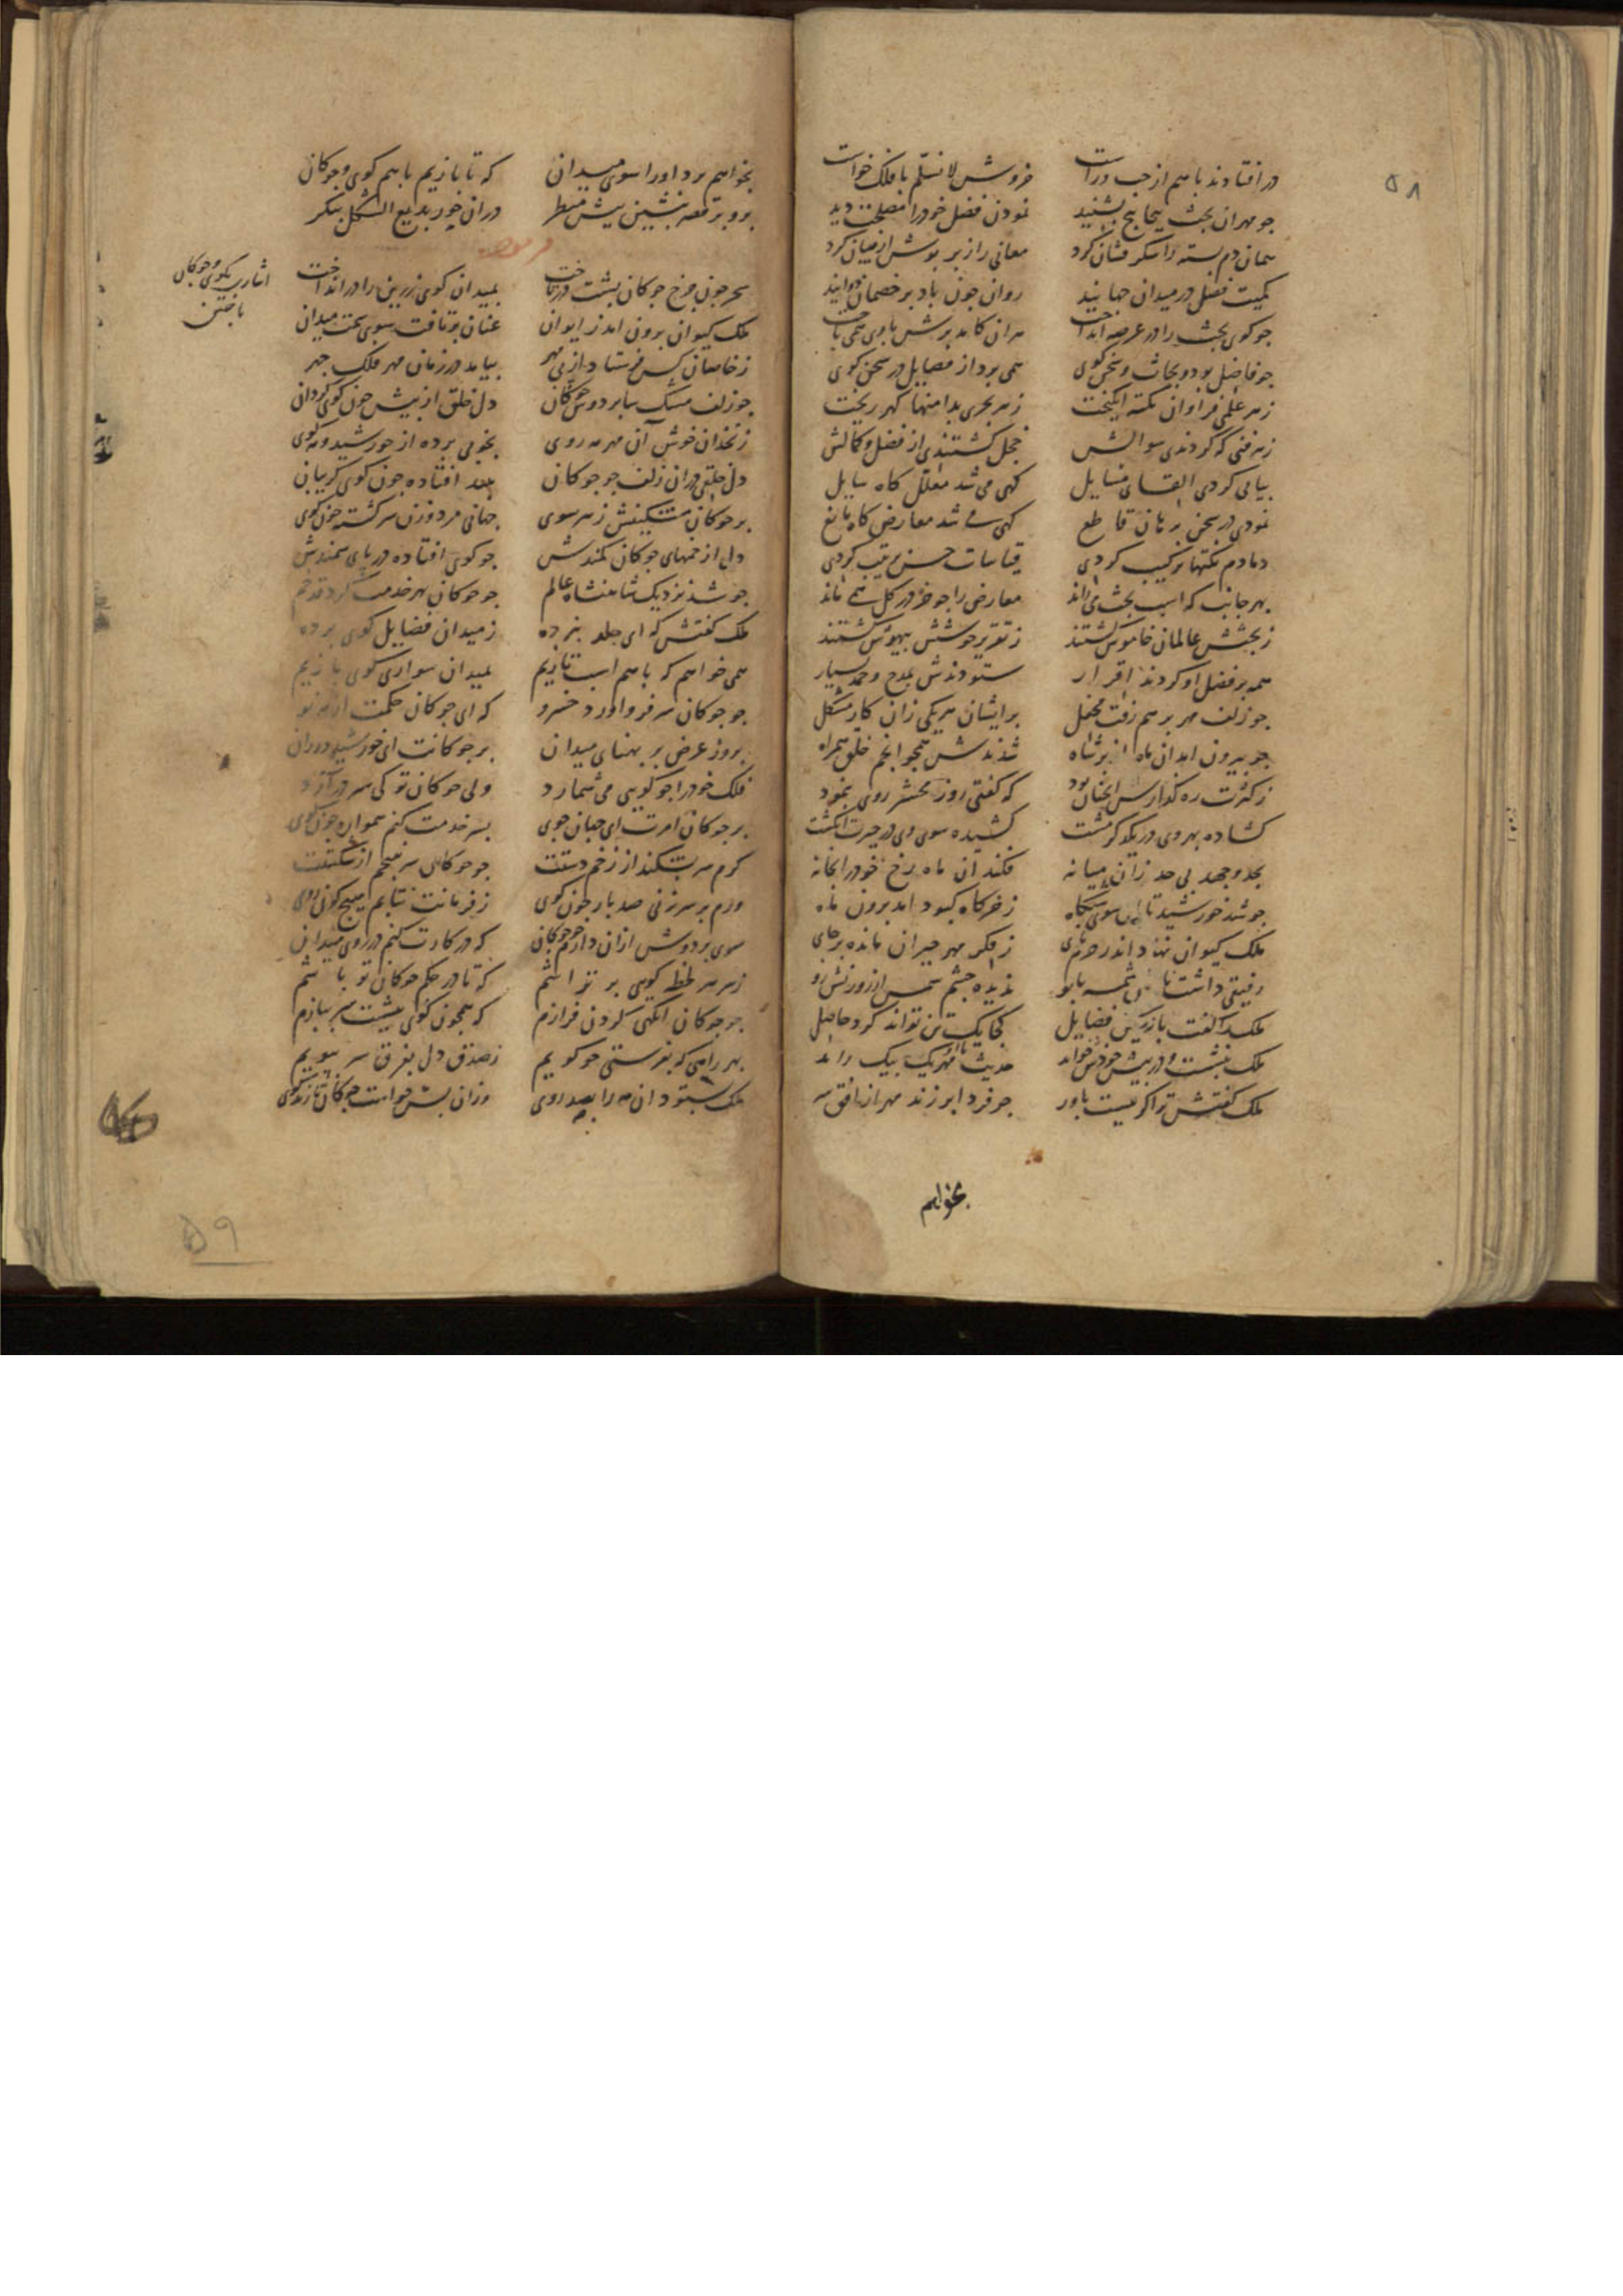 ۵۸
در افتادند با هم از چپ و راست خروش لانسلم با فلک خواست
جو مهر ان بحث بیجابیج بشنید نمودن فضل خود را مصلحت دید
دم بسته را شکر فشان کرد معانی را زبر میان کرد
کمیت فضل در میدان جهانید روان جون باد بر خصمان دوانید
جو کوی بحث را در عرصه انداخت هر ان کامد برش با وی همی باخت
جو فاضل بود و بحاث و سخن کوی همی برد از فضایل در سخن کوی
زهر علمی فراوان نکته انکیخت زهر بحری بدامنها کهر ریخت
زهر فنی که کردندی سوالش خجل کشتندی از فضل و کمالش
بیابی کردی القای مسایل کهی می شد معلل کاه سایل
نمودی در سخن برهان قاطع کهی می شد معارض کاه مانع
دمادم نکتها ترکیب کردی قیاسات حسن ترتیب کردی
بهر جانب که اسب بحث می راند معارض را جو خر در کل همی ماند
ز بحثش عالمان خاموش کشتند ز تقریر خوشش بیهوش کشتند
همه بر فضل او کردند اقرار ستودندش بمدح و حمد بسیار
جو زلف مهر بر هم رفت محفل بر ایشان هر یکی زان کار مشکل
جو بیرون امد ان ماه از بر شاه شدندش همجو انجم خلق همراه
ز کثرت ره کذارش انجنان بود که کفتی روز محشر روی بنمود
کشاده بهر وی در یکدکر مشت کشیده سوی وی در حیرت انکشت
بجد و جهد بی حد زان میانه فکند ان ماه رخ خود را بخانه
جو شد خورشید تابان سوی ز خرکاه کبود امد برون ماه
ملک کیوان نهاد اندر حرم بای ز فکر مهر حیران مانده بر جای
رفیقی داشت ندیده جشم شمس از روزنش رو
ملک را کفت با زین فضایل کجا یک تن تواند کرد حاصل
ملک بنشست و در بیش خودش خواند حدیث مهر یک بیک راند
ملک کفتش ترا کر نیست باور جو فردا بر زند مهر از افق سر
بخواهم
بخواهم برد او را سوی میدان که تا بازیم با هم کوی و جوکان
برو بر قصر بنشین بیش منظر در ان خور بدیع الشکل بنکر
اشارت بکوی و جوکان
باختن
سحر جون جرخ جوکان بشت درتاخت بمیدان کوی زرین را در انداخت
ملک کیوان برون امد ز ایوان عنان برتافت سوی سخت میدان
ز خاصان کس فرستاد از بی مهر بیامد در زمان مهر فلک جهر
جو زلف مشک سا بر دوش جوکان دل خلق از بیش جون کوی کردان
زنخدان خوش آن مهر مه روی بخوبی برده از خورشید و مه کوی
دل خلقی در ان زلف جو جوکان افتاده جون کوی کریبان
بر جوکان مشکینش زهر سوی جهانی مرد و زن سرکشته جون کوی
دل از خمهای جوکان کمندش جو کوی افتاده در بای سمندش
جو شد نزدیک شاهنشاه عالم جو جوکان بهر خدمت کرد قد خم
ملک کفتش که ای جلد ز میدان فضایل کوی برده
همی خواهم که با هم اسب تازیم بمیدان سواری کوی بازیم
جو جوکان سر فرو اورد خسرو که ای جوکان حکمت
بروز عرض بر بهنای میدان بر جوکانت ای خورشید دوران
فلک خود را جو کویی می شمارد ولی جوکان تو کی سر در آرد
بر جوکان امرت ای جهان جوی بسر خدمت کنم همواره جون کوی
کرم سر بشکند از زخم دستت جو جوکان سر نبیجم از شکستت
ورم بر سر زنی صد بار جون کوی ز فرمانت نتابم هیج کون روی
سری بر دوش ازان دارم جو جوکان که در کارت کنم در روی میدان
زهر سر لحظه کویی بر تراشم که تا در حکم جوکان تو باشم
جو جوکان انکهی کردن فرازم که همجون کوی بیشت سر ببازم
بهر راهی که بفرستی جو کویم ز صدق دل بفرق سر ببویم
ملک بستود ان مه را بصد روی وزان بس خواست جوکان
۵۹